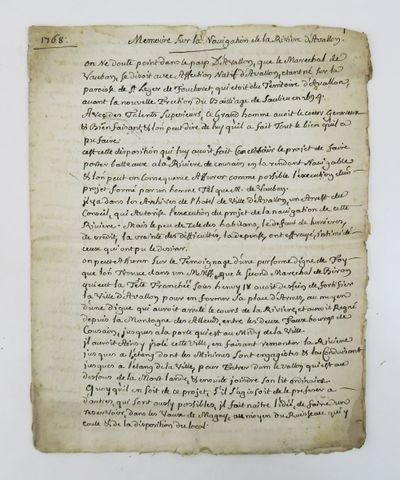 1768.
Memoire Sur la Navigation de la Rivière d'Avallon.
on ne doute point dans le pays D'Avallon, que le Marechal de
Vauban, se disoit avec Affection Natif d'Avallon, etant né sur la
paroisse de St Leger de Foucheret, qui etoit du Territoire d'Avallon,
avant la nouvelle Erection du Bailliage de Saulieu en
Avec des Talents Superieurs, ce Grand homme avoit le cœur Genereux
& Bienfaisant, & lon peut dire de luy qu'il a fait Tout le bien qu'il a
pu faire
cest cette disposition qui luy avoit fait le projet de faire
porter batteaux a la Riviere de cousain en la rendant Navigable
& lon peut en Consequence Assurer comme possible l'execution d'un
projet formé par un homme Tel que M. de Vauban.
il y a dans les Archives de l'hotel de Ville d'Avallon, un Arrest du
Conseil, qui Autorise l'execution du projet de la navigation de cette
Riviere. Mais le peu de Zele des habitans, le defaut de lumieres,
de credit, la crainte des difficultés, la depense, ont effrayé, intimidé
ceux qui ont pu le desirer.
on peut Assurer Sur le Temoignage d'une personne digne de Foy
que lon Trouve dans un que le Second Marechal de Biron
qui eut la Tete Tranchée Sous henry IV avoit dessein de fortifier
la Ville d'Avallon, pour en former Sa place d'Armes, au moyen
d'une digue qui auroit arreté le cours de la Riviere, et auroit Regné
depuis la Montagne des Alleus, entre les deux Faux bourgs de
Cousain, jusques a la parte qui est au Midy de la Ville.
il auroit Ainsy isolé cette Ville, en faisant remonter la Riviere
jusques a letang dont les Minimes Sont engagistes & la Conduisant
jusques a letang de la Ville, pour Entrer dans le Vallon qui est au
dessous de la & ensuite joindre Son lit ordinaire.
Quoy qu'il en Soit de ce projet, S'il S'agissoit de le preferer a
d'autres, qui Sont aussy possibles, il fait naitre l'idée de faire un
reservoir, dans les Vaux de Magny, au moyen du Ruisseau qui y
coule & de la disposition du local.